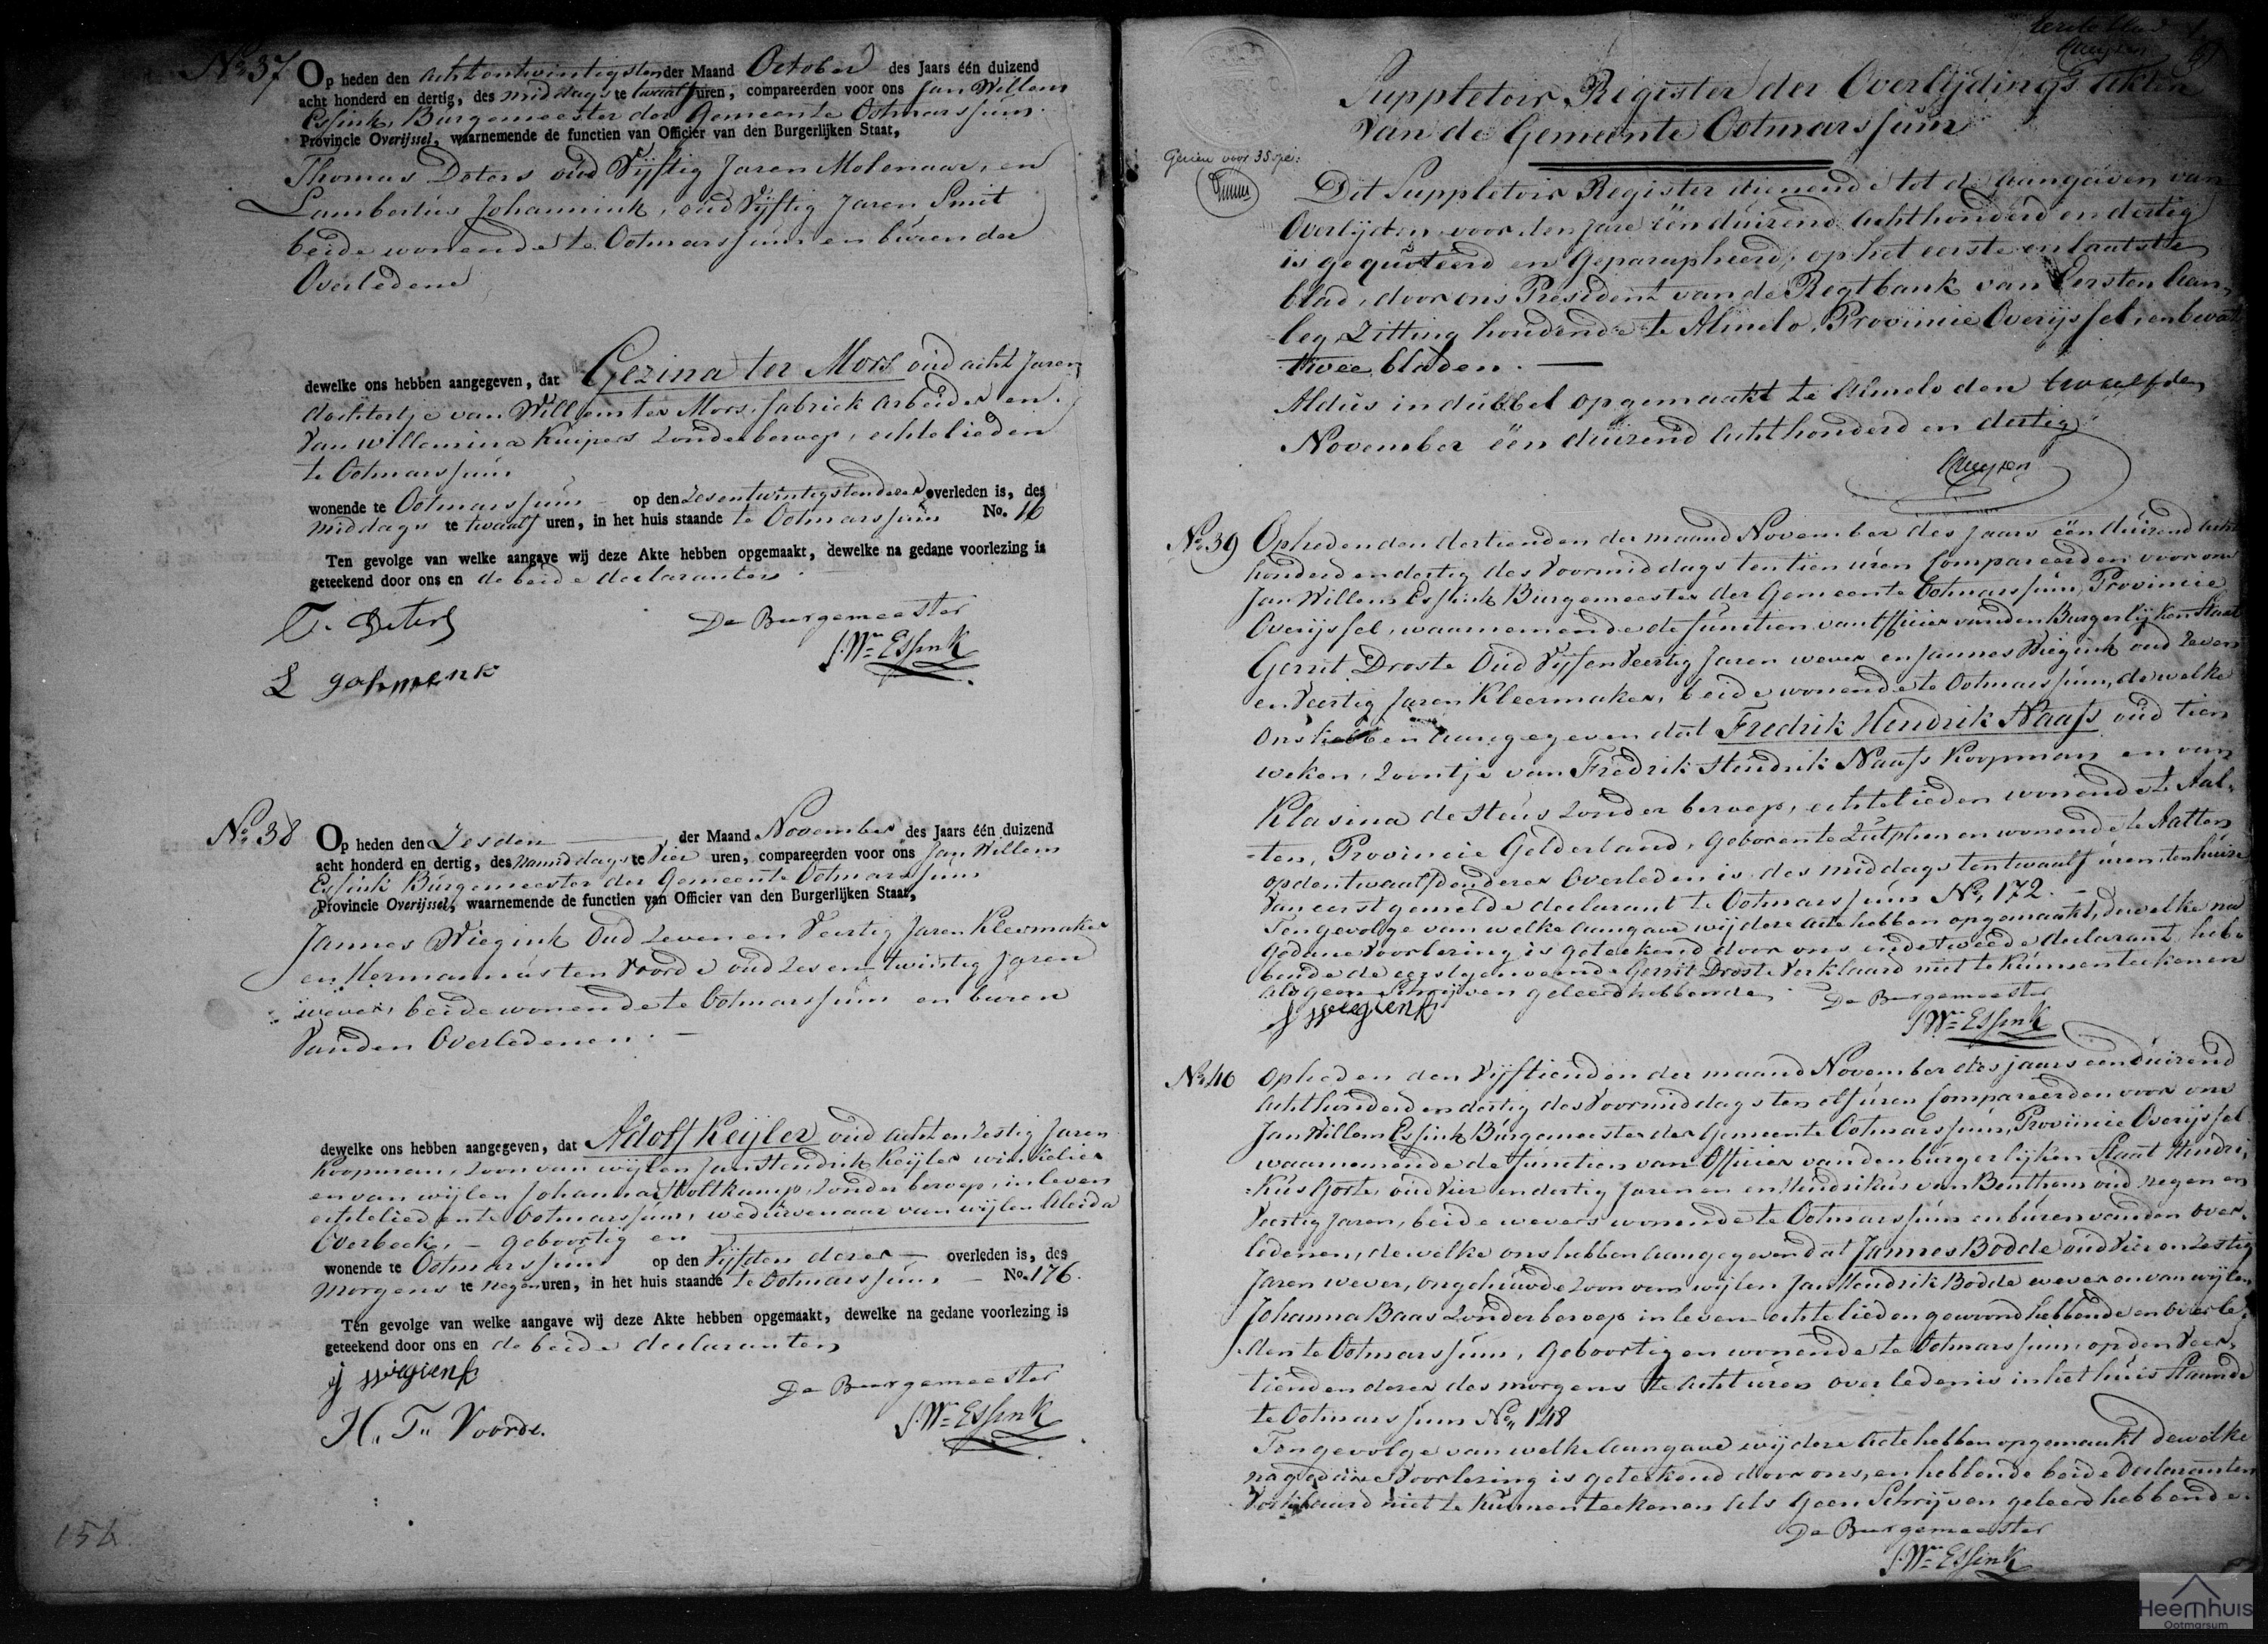 No 37 Op heden den achtentwintigsten der Maand October des Jaars één duizend
acht honderd en dertig, des middags te twaalf uren, compareerden voor ons Jan Willem
Essink, Burgemeester der Gemeente Ootmarssum
Provincie Overijssel, waarnemende de functien van Officier van den Burgerlijken Staat,
Thomas Deters oud Vijftig Jaren Molenaar, en
Lambertus Johannink, oud Vijftig Jaren Smit
beide wonende te Ootmarssum en buren der
Overledene
dewelke ons hebben aangegeven, dat Gezina ter Mors oud acht Jaren
dochtertje van Willem ter Mors, fabriek arbeider en
van Willemina Kuipers zonder beroep, echtelieden
te Ootmarssum
wonende te Ootmarssum – op den zesentwintigsten dezer overleden is, des
middags te twaalf uren, in het huis staande te Ootmarssum No. 16
Ten gevolge van welke aangave wij deze Akte hebben opgemaakt, dewelke na gedane voorlezing is
geteekend door ons en de beide declaranten.
T. Deters
De Burgemeester
J. Wm Essink
L
No 38 Op heden den Zesden der Maand November des Jaars één duizend
acht honderd en dertig, des namiddags te vier uren, compareerden voor ons Jan Willem
Essink Burgemeester der Gemeente Ootmarssum
Provincie Overijssel, waarnemende de functien van Officier van den Burgerlijken Staat,
Jannes Wiegink Oud Zeven en Veertig Jaren Kleermaker
en Hermannus ten Voorde oud zes en twintig Jaren
wever, beide wonende te Ootmarssum en buren
van den Overledenen. –
dewelke ons hebben aangegeven, dat Adolf Keijler oud acht en zestig Jaren
Koopman, zoon van wijlen Jan Hendrik Keijler winkelier
en van wijlen Johanna Holtkamp, zonder beroep, in leven
echtelieden te Ootmarssum, weduwenaar van wijlen Aleida
Overbeek, – geboortig en
wonende te Ootmarssum op den Vijfden dezer – overleden is, des
morgens te negen uren, in het huis staande te Ootmarssum – No. 176.
Ten gevolge van welke aangave wij deze Akte hebben opgemaakt, dewelke na gedane voorlezing is
geteekend door ons en de beide declaranten
J Wiegink
De Burgemeester
H. T. Voorde.
J. Wm Essink
154.
Eerste blad
Suppletoir Register der Overlijdings Akten
van de Gemeente Ootmarssum
Gezien voor 35
Dit Suppletoir Register dienende tot de aangaven van
Overlijden voor den jare één duizend achthonderd en dertig
is gequoteerd en Geparapheerd, op het eerste en laatste
blad, door ons President van de Regtbank van Eersten Aan-
leg, zitting houdende te Almelo, Provincie Overijssel, en bevat
twee bladen. —
Aldus in dubbel opgemaakt te Almelo den twaalfden
November één duizend achthonderd en dertig
No 39 Op heden den dertienden der maand November des Jaars één duizend acht
honderd en dertig des Voormiddags ten tien uren Compareerden voor ons
Jan Willem Essink Burgemeester der Gemeente Ootmarssum, Provincie
Overijssel, waarnemende de functien van Officier van den Burgerlijken Staat
Gerrit Droste Oud Vijf en Veertig Jaren wever en Jannes Wiegink oud zeven
en Veertig Jaren Kleermaker, beide wonende te Ootmarssum, dewelke
ons hebben aangegeven dat Fredrik Hendrik Naafs oud tien
weken, zoontje van Fredrik Hendrik Naafs Koopman en van
Klasina de Heus zonder beroep, echtelieden wonende te Aal-
-ten, Provincie Gelderland, geboren te Zutphen en wonende te Aalten
op den twaalfden dezer Overleden is, des middags ten twaalf uren, ten huize
van eerstgemelde declarant te Ootmarssum No. 172. –
Ten gevolge van welke aangave wij deze acte hebben opgemaakt, dewelke na
gedane voorlezing is geteekend door ons en de tweede declarant, heb-
bende de eerstgenoemde Gerrit Droste verklaard niet te kunnen teekenen
als geen Schrijven geleerd hebbende.
J Wiegink
De Burgemeester
J. Wm Essink
No 40 Op heden den Vijftienden der maand November des jaars een duizend
achthonderd en dertig des Voormiddags ten elf uren Compareerden voor ons
Jan Willem Essink Burgemeester der Gemeente Ootmarssum, Provincie Overijssel
waarnemende de functien van Officier van den burgerlijken Staat Hendri-
-kus Goste, oud Vier en dertig Jaren en Hendrikus van Benthem oud negen en
Veertig Jaren, beide wevers wonende te Ootmarssum en buren van den over-
ledenen, dewelke ons hebben aangegeven dat Jannes Bodde oud Vier en Zestig
Jaren wever, ongehuwde zoon van wijlen Jan Hendrik Bodde wever en van wijlen
Johanna Baas zonder beroep in leven echtelieden gewoond hebbende en overle-
den te Ootmarssum, geboortig en wonende te Ootmarssum, op den Veer-
tienden dezer des morgens te acht uren overleden is in het huis staande
te Ootmarssum No. 148
Ten gevolge van welke aangave wij deze acte hebben opgemaakt dewelke
na gedane voorlezing is geteekend door ons, en hebbende beide declaranten
verklaard niet te kunnen teekenen als geen Schrijven geleerd hebbende.
De Burgemeester
J. Wm Essink
Heemhuis
Ootmarsum